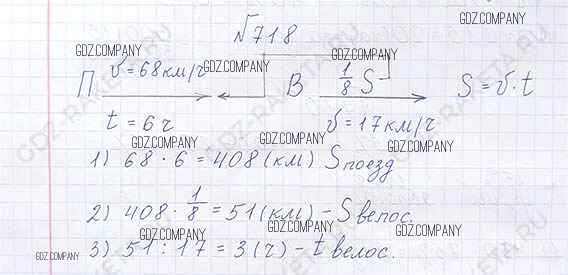 №718
П v = 68 км/ч В 1/8 S S = v · t
t = 6 ч v = 17 км/ч
1) 68 · 6 = 408 (км) S поезд
2) 408 · 1/8 = 51 (км) - S велос.
3) 51 : 17 = 3 (ч) - t велос.
GDZ.COMPANY
GDZ.COMPANY
GDZ.COMPANY
GDZ.COMPANY
GDZ.COMPANY
GDZ.COMPANY
GDZ.COMPANY
GDZ.COMPANY
GDZ.COMPANY
GDZ.COMPANY
GDZ-RAKETA.RU
GDZ-RAKETA.RU